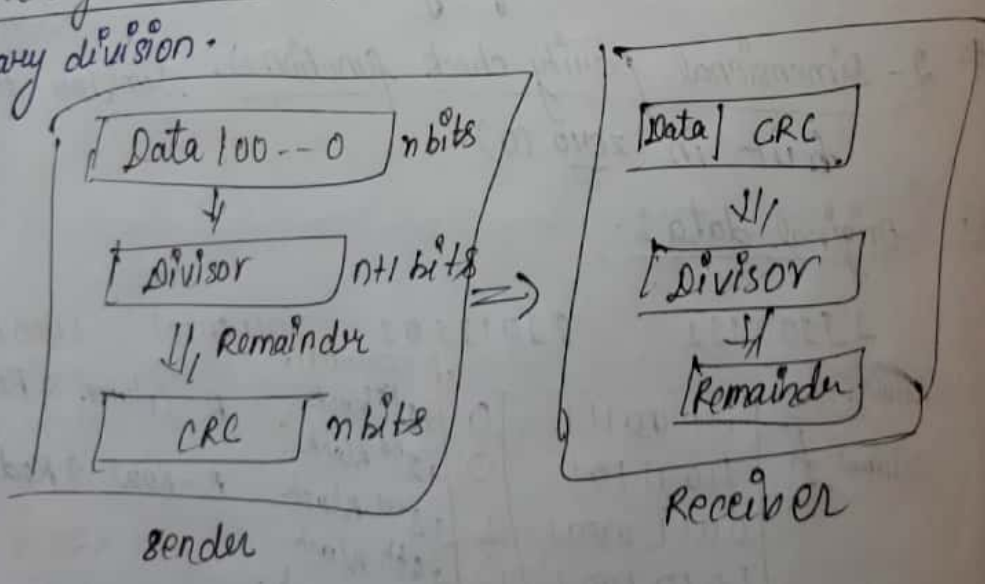 ary division.
Data 100---0 n bits
Divisor n+1 bits
Remainder
CRC n bits
Sender
Data CRC
Divisor
Remainder
Receiver